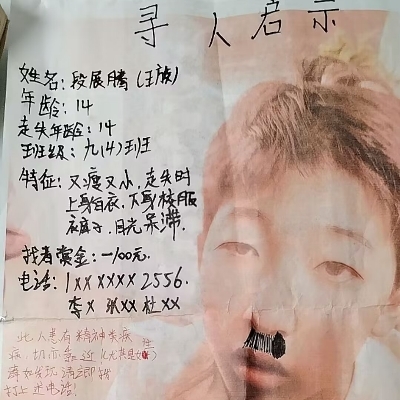 寻人启示
姓名：段展腾（王族）
年龄：14
走失年龄：14
班级：九（4）班
特征：又瘦又小，走失时
上身白衣，下身校服
裤子，目光呆滞.
找者赏金：-100元.
电话：1XXXXXX2556.
李X 张XX 杜XX
此人患有精神疾病
切勿靠近（尤其是女生）
如发现请立即
打上述电话！